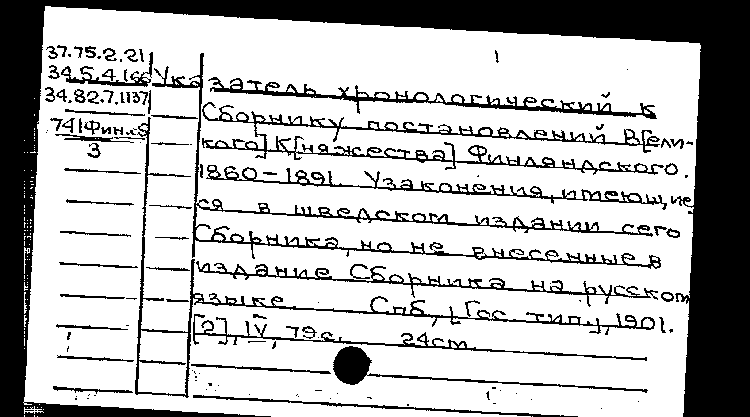 1
37.75.2.21
34.5.4.166 Указатель хронологический к
34.82.7.1137 Сборнику постановлений В[ели-
741Фин.с9 кого] К[няжества] Финляндского.
3
1860-1891. Узаконения, имеющие
ся в шведском издании сего
Сборника, но не внесенные в
издание Сборника на русском
языке. Спб, [Гос. тип.], 1901.
[2], IV, 79с. 24см.